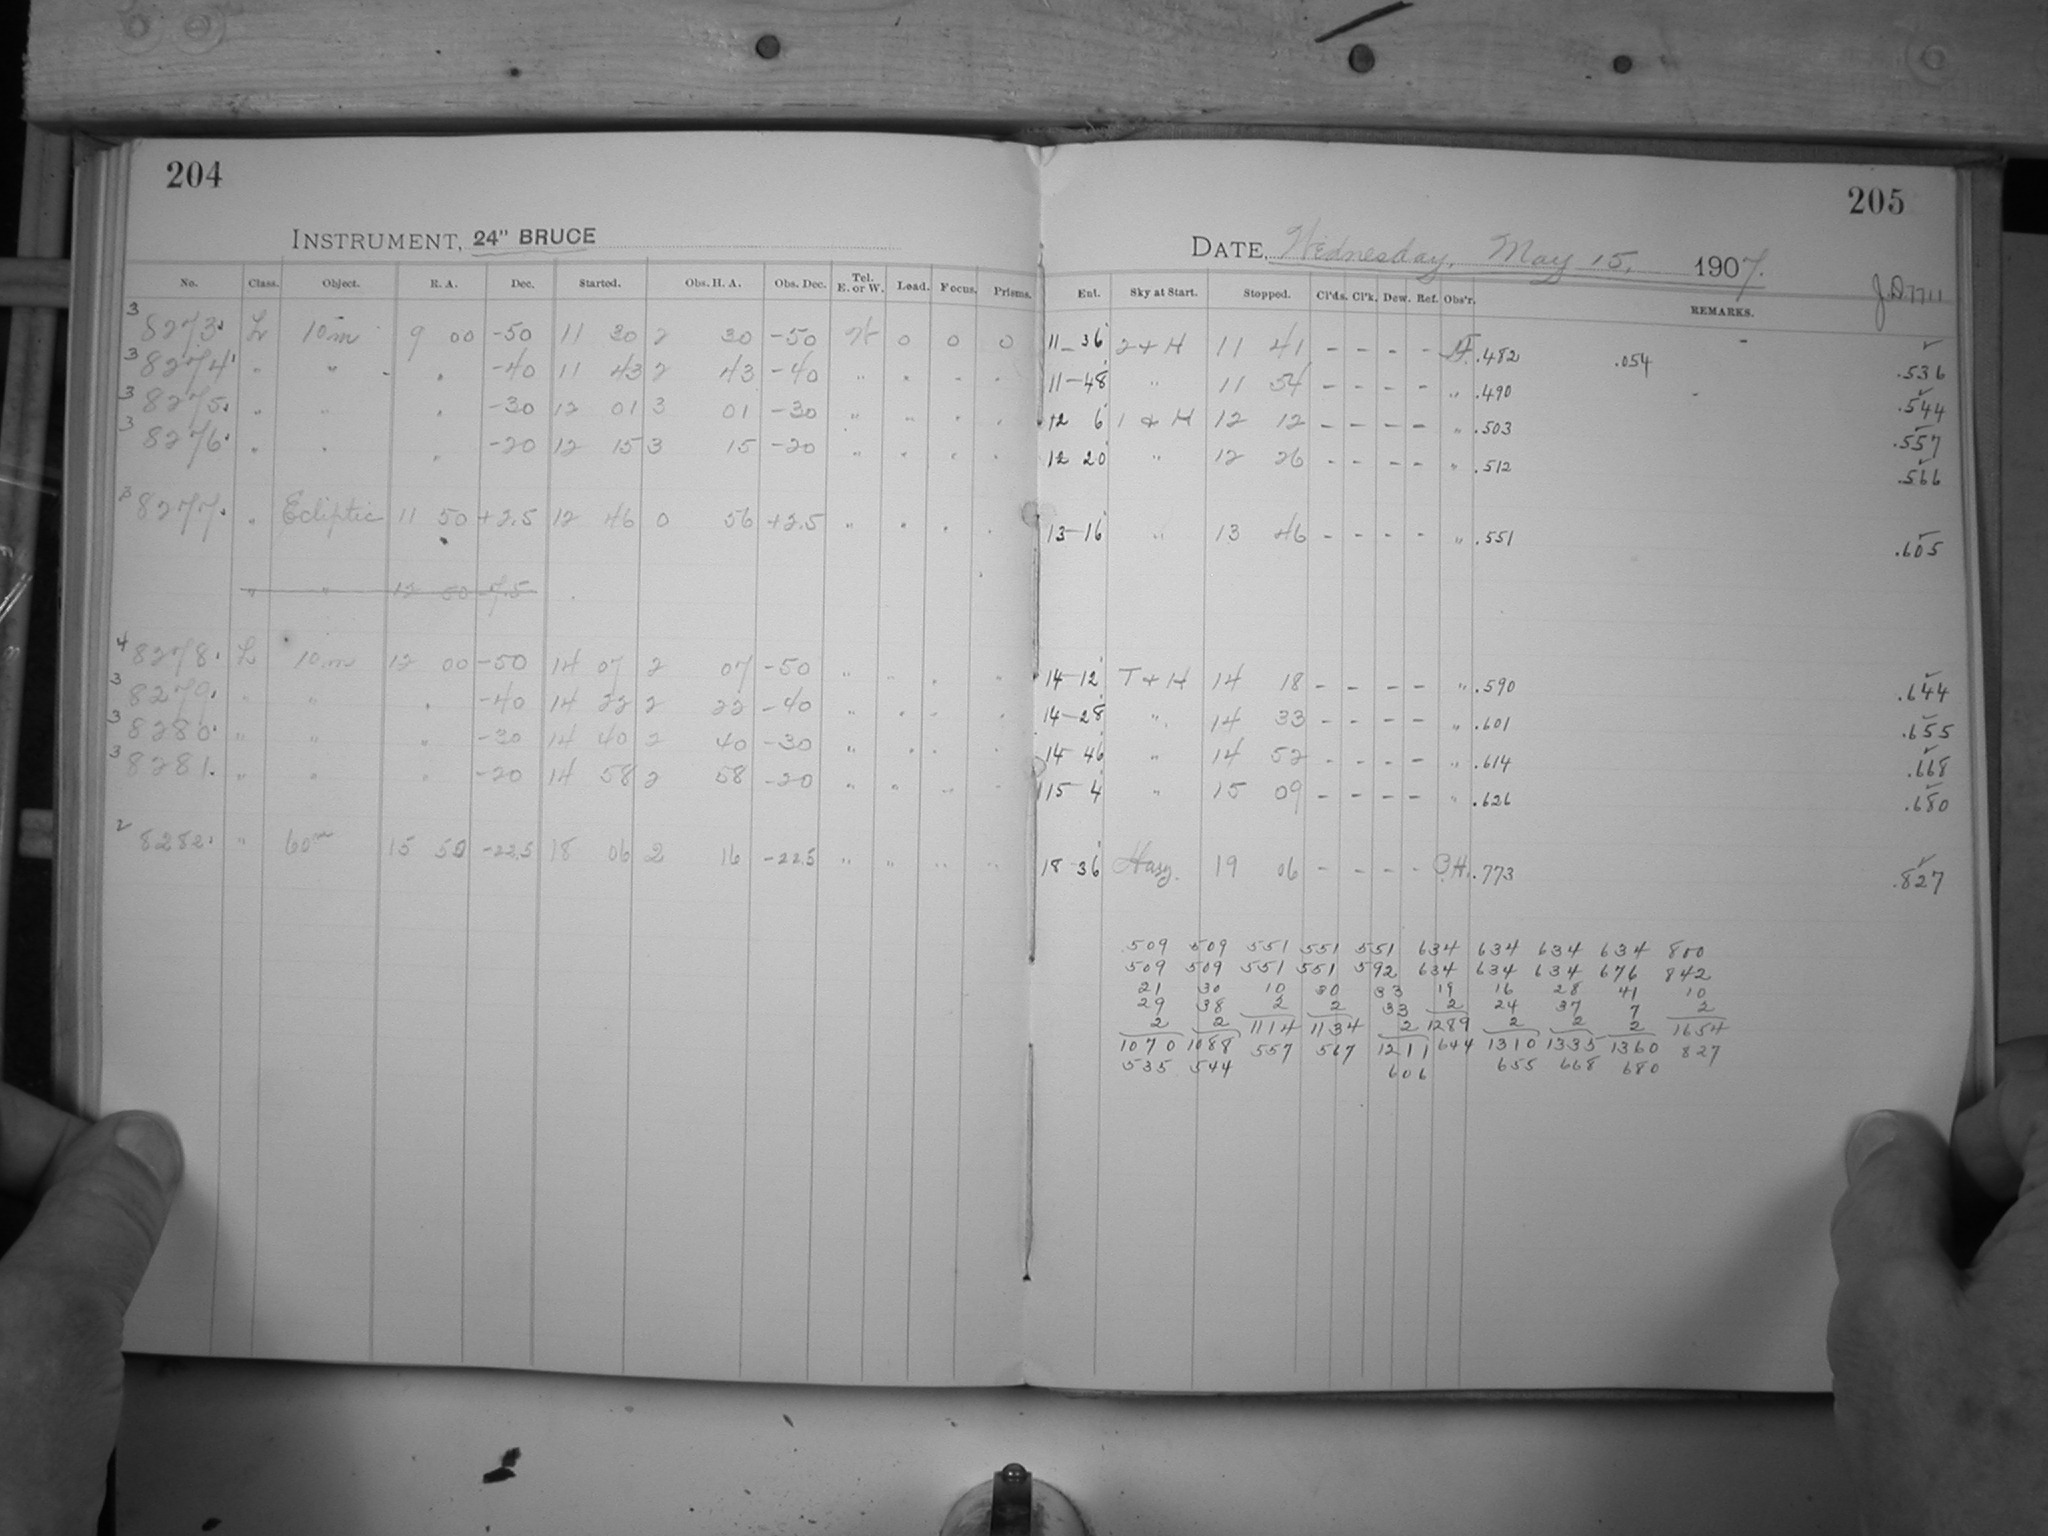 204
INSTRUMENT, 24" BRUCE
No. Class. Object. R. A. Dec. Started. Obs. H. A. Obs. Dec. Tel. E. or W. Lead. Focus. Prisms.
3 8273. L 10m 9 00 -50 11 30 2 30 -50 W 0 0 0
3 8274. " " " -40 11 43 2 43 -40 " " " "
3 8275. " " " -30 12 01 3 01 -30 " " " "
3 8276. " " " -20 12 15 3 15 -20 " " " "
3 8277. " Ecliptic 11 50 +2.5 12 46 0 56 +2.5 " " " "
" " 12 50 -7.5
4 8278. L 10m 12 00 -50 14 07 2 07 -50 " " " "
3 8279. " " " -40 14 22 2 22 -40 " " " "
3 8280. " " " -30 14 40 2 40 -30 " " " "
3 8281. " " " -20 14 58 2 58 -20 " " " "
2 8282. " 60m 15 50 -22.5 18 06 2 16 -22.5 " " " "
205
DATE, Wednesday, May 15, 1907.
J.D 7711
Ent. Sky at Start. Stopped. Cl'ds. Cl'k. Dew. Ref. Obs'r. REMARKS.
11-36 2 + H 11 41 - - - - .482 .054 .536
11-48 " 11 54 - - - - " .490 .544
12 6 1 & H 12 12 - - - - " .503 .557
12 20 " 12 26 - - - - " .512 .566
13-16 " 13 46 - - - - " .551 .605
14-12 T + H 14 18 - - - - " .590 .644
14-28 " 14 33 - - - - " .601 .655
14 46 " 14 52 - - - - " .614 .668
15 4 " 15 09 - - - - " .626 .680
18-36 Hazy. 19 06 - - - - .773 .827
509 509 551 551 551 634 634 634 634 800
509 509 551 551 592 634 634 634 676 842
21 30 10 30 33 19 16 28 41 10
29 38 2 2 33 2 24 37 7 2
2 2 1114 1134 2 1289 2 2 2 1654
1070 1088 557 567 1211 644 1310 1335 1360 827
535 544 606 655 668 680